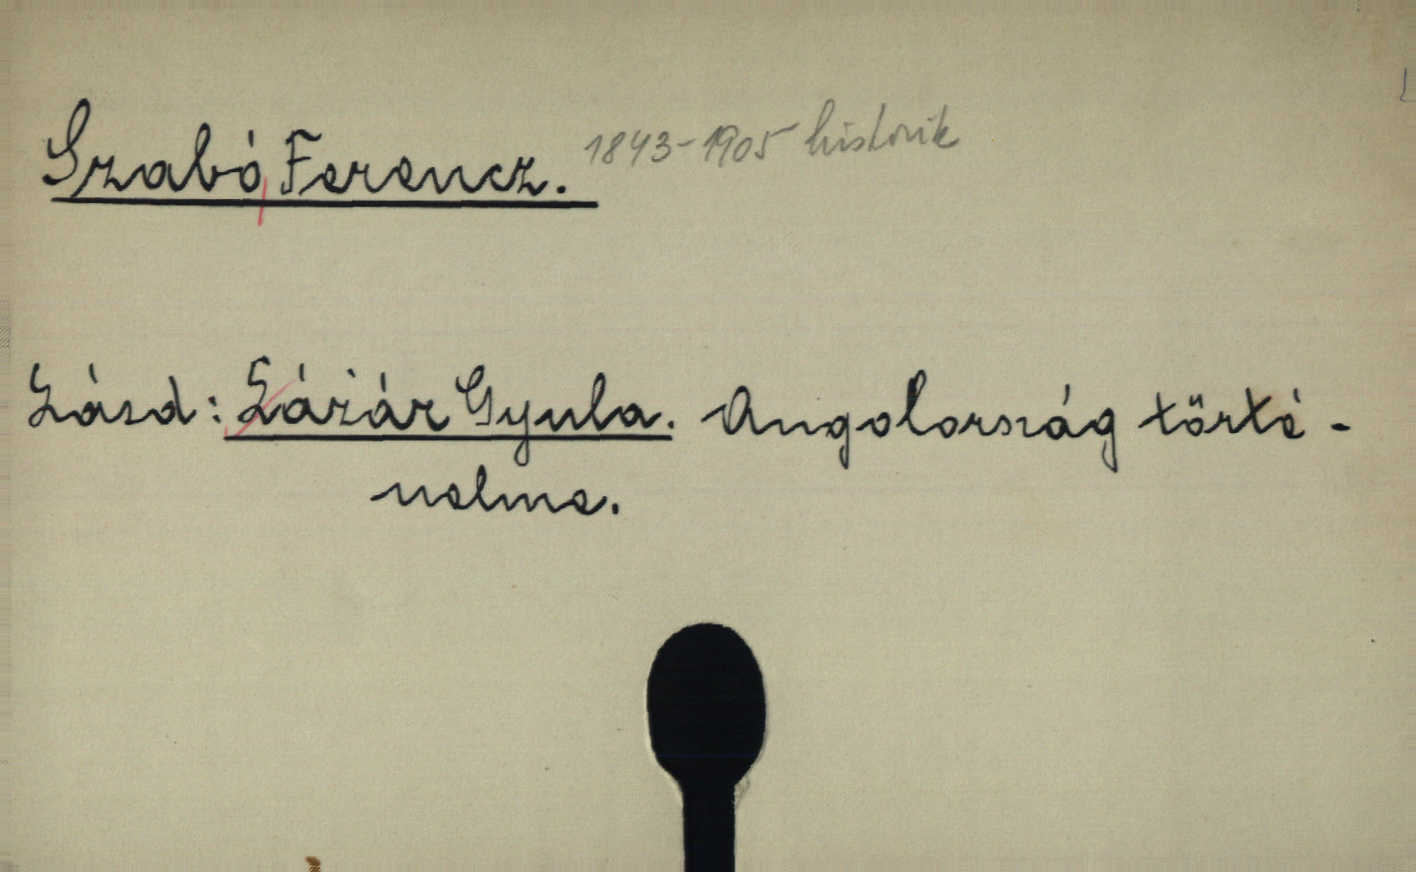 Szabó Ferencz. 1843-1905 historik
Lásd: Lázár Gyula. Angolország törté-
nelme.